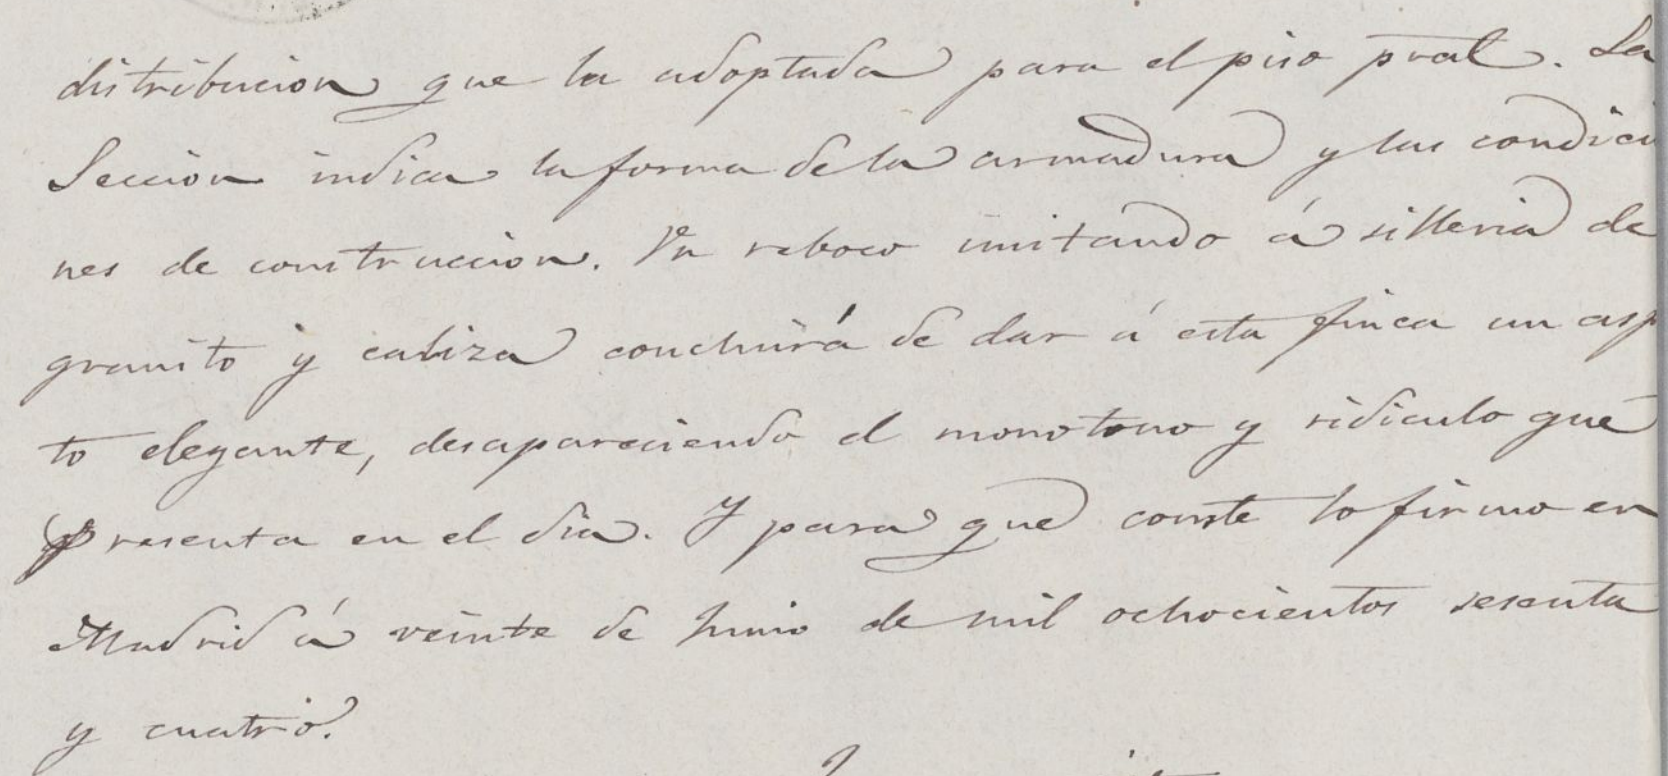 distribucion que la adoptada para el piso pral. La
Seccion indica la forma de la armadura y las condicio
nes de construccion. Un reboco imitando á silleria de
granito y caliza concluirá de dar á esta finca un asp
to elegante, desapareciendo el monotono y ridiculo que
presenta en el dia. Y para que conste lo firmo en
Madrid á veinte de Junio de mil ochocientos sesenta
y cuatro.